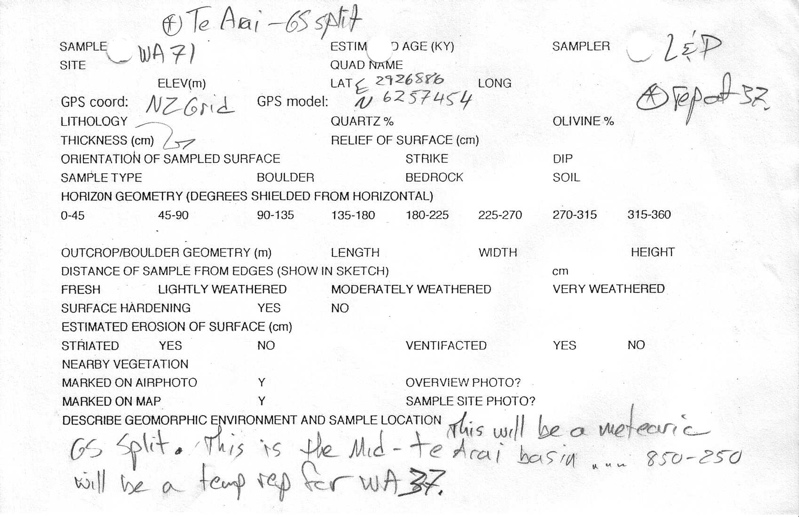 (A) Te Arai - GS split
SAMPLE WA71 ESTIM D AGE (KY) SAMPLER L&D
SITE QUAD NAME
ELEV(m) LAT E 2926886 LONG
GPS coord: NZ Grid GPS model: N 6257454 (A) Tep at 37.
LITHOLOGY QUARTZ % OLIVINE %
THICKNESS (cm) RELIEF OF SURFACE (cm)
ORIENTATION OF SAMPLED SURFACE STRIKE DIP
SAMPLE TYPE BOULDER BEDROCK SOIL
HORIZON GEOMETRY (DEGREES SHIELDED FROM HORIZONTAL)
0-45 45-90 90-135 135-180 180-225 225-270 270-315 315-360
OUTCROP/BOULDER GEOMETRY (m) LENGTH WIDTH HEIGHT
DISTANCE OF SAMPLE FROM EDGES (SHOW IN SKETCH) cm
FRESH LIGHTLY WEATHERED MODERATELY WEATHERED VERY WEATHERED
SURFACE HARDENING YES NO
ESTIMATED EROSION OF SURFACE (cm)
STRIATED YES NO VENTIFACTED YES NO
NEARBY VEGETATION
MARKED ON AIRPHOTO Y OVERVIEW PHOTO?
MARKED ON MAP Y SAMPLE SITE PHOTO?
DESCRIBE GEOMORPHIC ENVIRONMENT AND SAMPLE LOCATION This will be a metearic
GS split. This is the Mid-te Arai basin ... 850-250
will be a temp rep for WA 37.